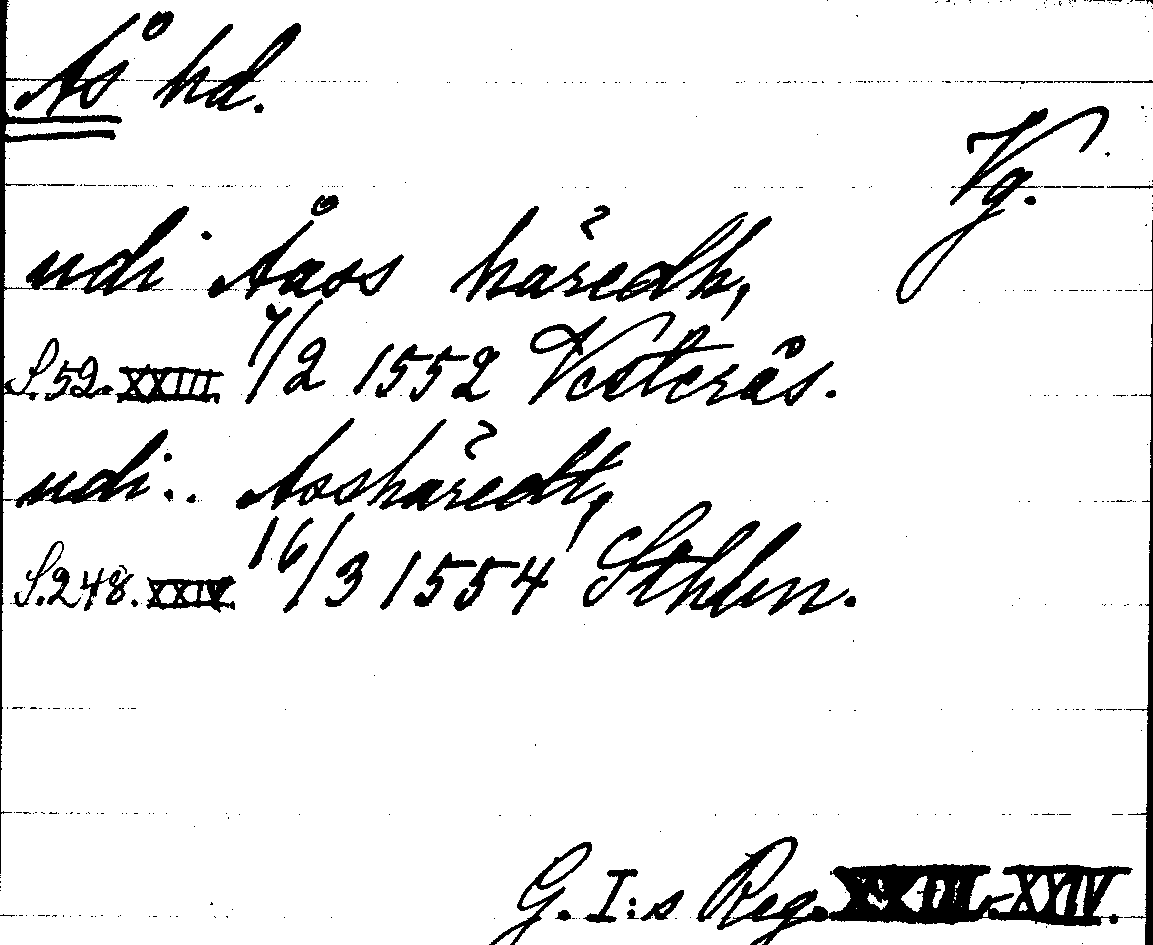 Ås hd.
Vg.
udi Åass häredh,
S. 52. XXIII. 7/2 1552 Vesterås.
udi.. Asshäredt,
S. 248. XXIV. 16/3 1554 Sthlm.
G. I:s Reg. XXIII-XXIV.